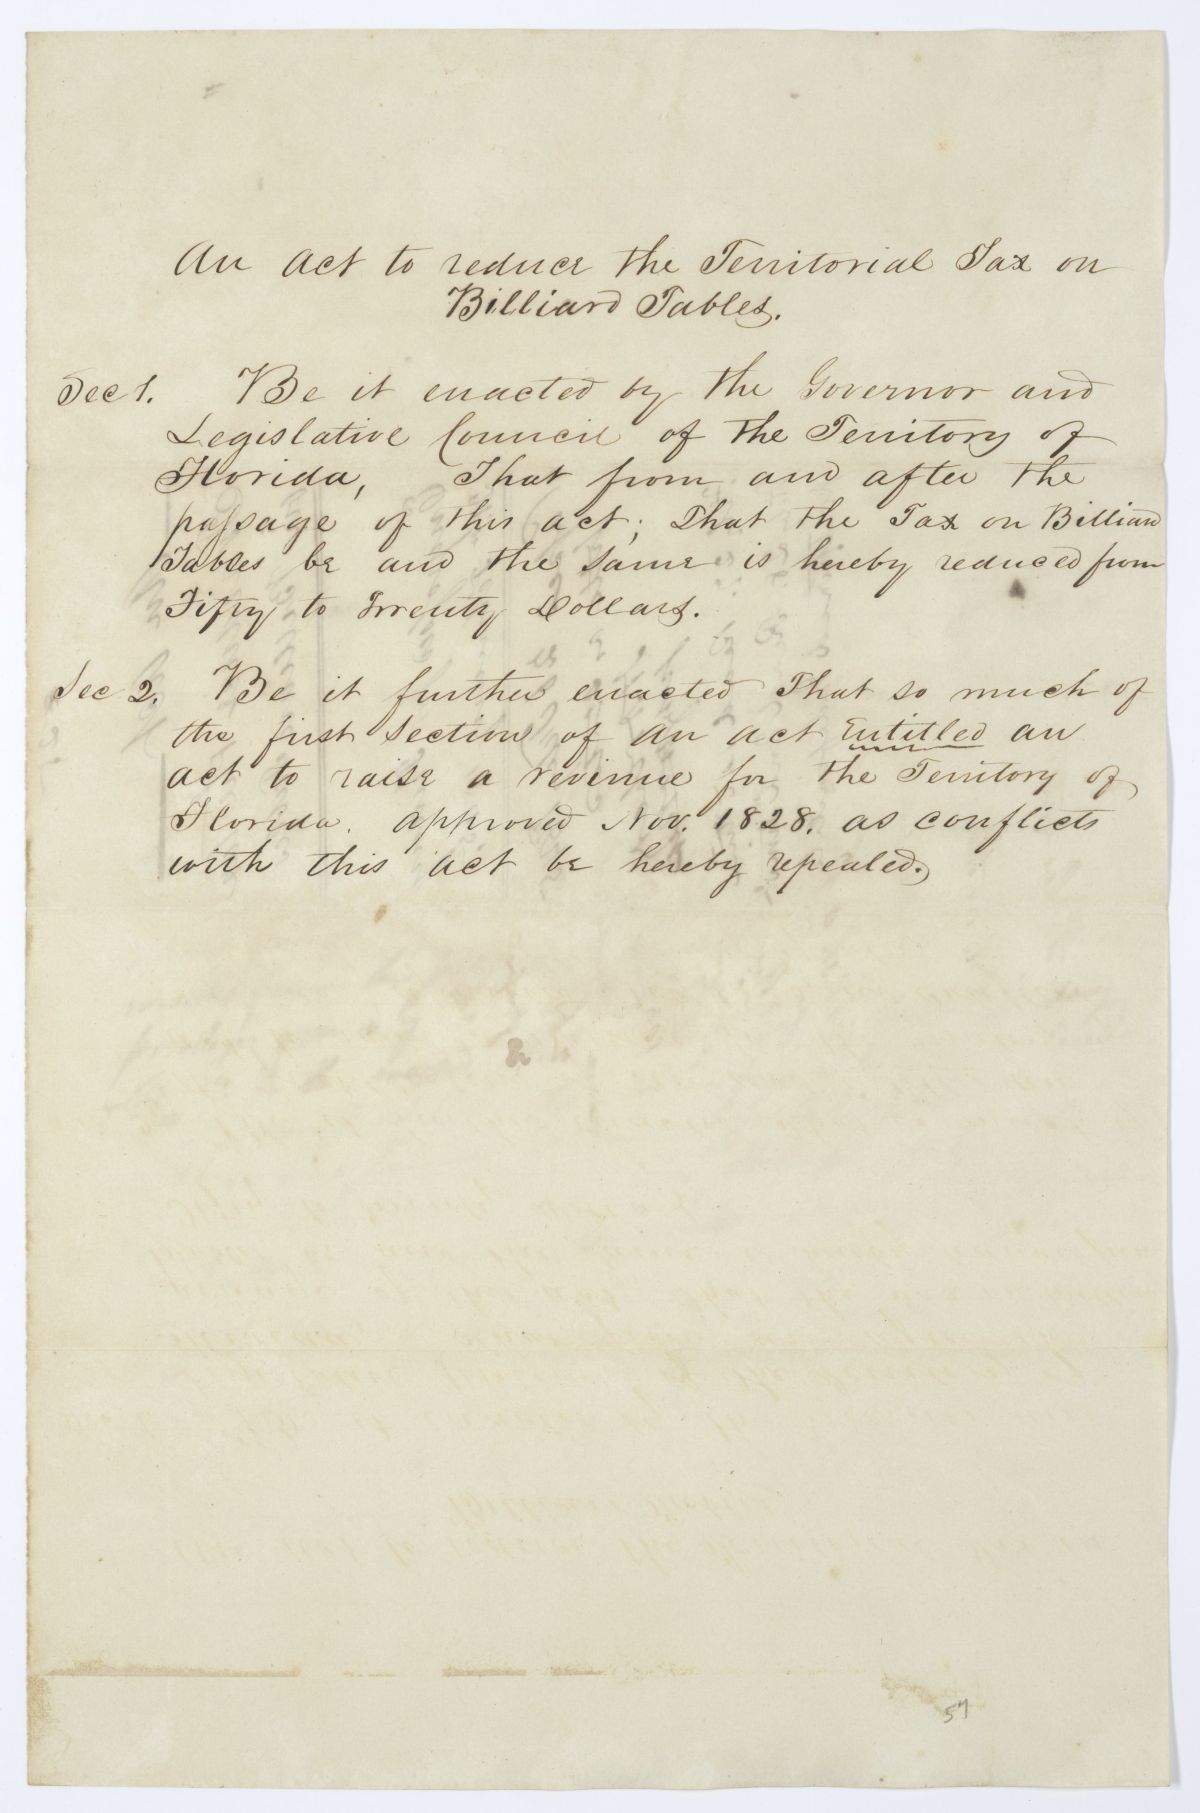 An Act to reduce the Territorial Tax on
Billiard Tables.
Sec 1. Be it enacted by the Governor and
Legislative Council of the Territory of
Florida, That from and after the
passage of this act; That the Tax on Billiard
Tables be and the same is hereby reduced from
Fifty to Twenty Dollars.
Sec 2. Be it further enacted That so much of
the first Section of an act Entitled an
act to raise a revinue for the Territory of
Florida. approved Nov. 1828. as conflicts
with this act be hereby repealed.
57